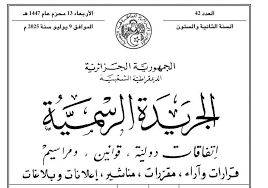 العدد 42
الأربعاء 13 محرّم عام 1447 هـ
السنة الثانية والستون
الموافق 9 يوليو سنة 2025 م
الجمهورية الجزائرية
الديمقراطية الشعبية
الجريدة الرسمية
إتفاقات دولية، قوانين، ومراسيم
قرارات وآراء، مقررات، مناشير، إعلانات وبلاغات